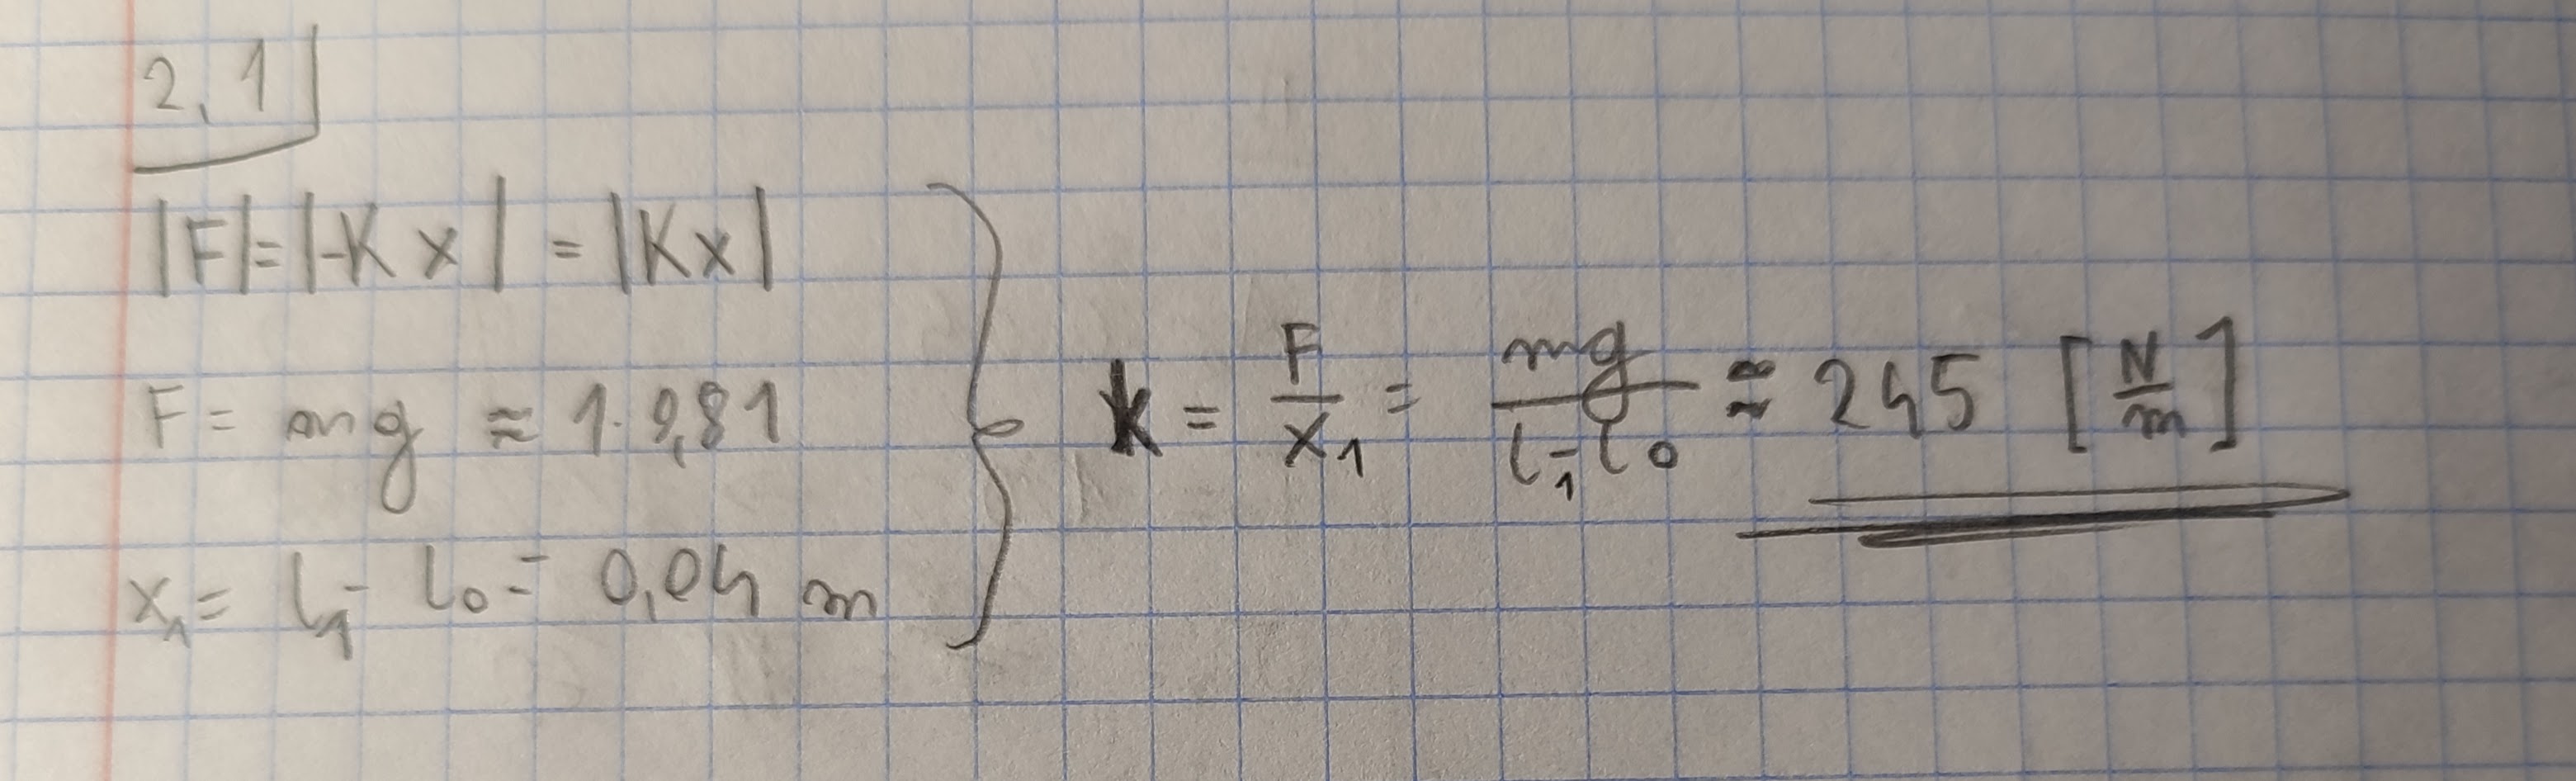 2,1
|F|=|-Kx| = |Kx|
F = mg ≈ 1·9,81
x₁ = l₁ - l₀ = 0,04 m
k = F/x₁ = mg/(l₁-l₀) ≈ 245 [N/m]